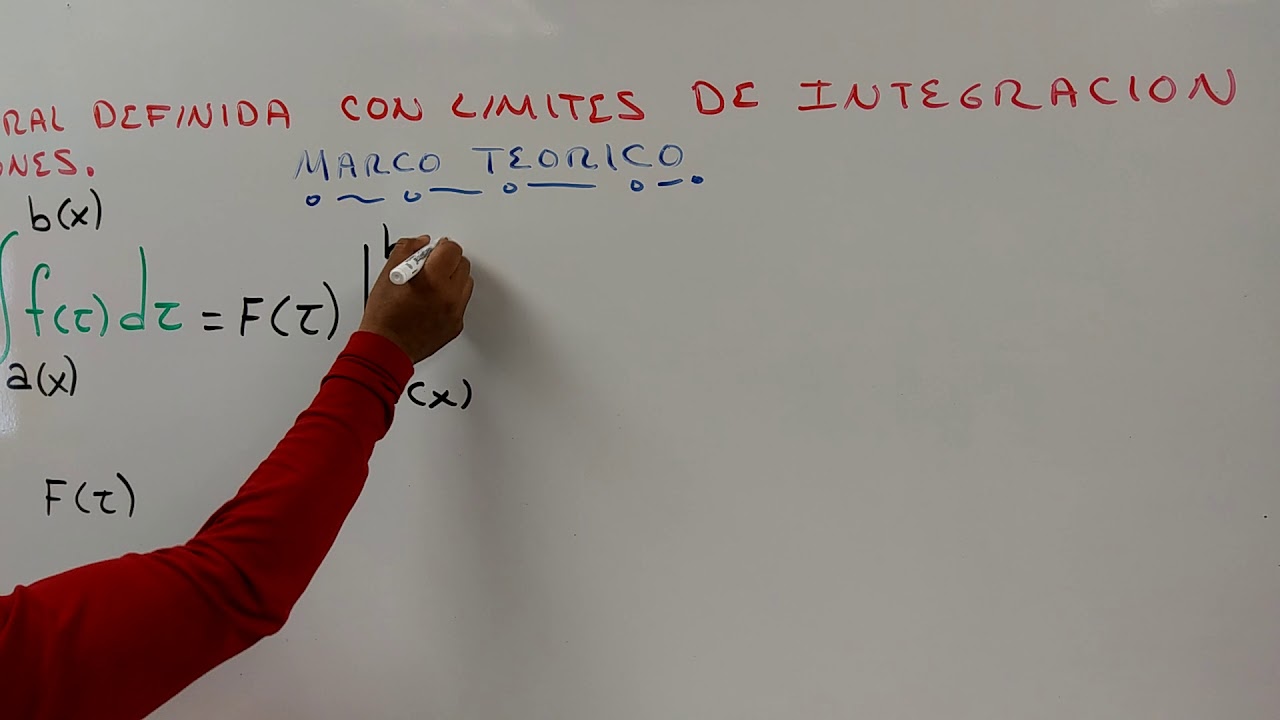 RAL DEFINIDA CON LIMITES DE INTEGRACION
ONES.
MARCO TEORICO
b(x)
∫ f(τ) dτ = F(τ) |
a(x)
(x)
F(τ)